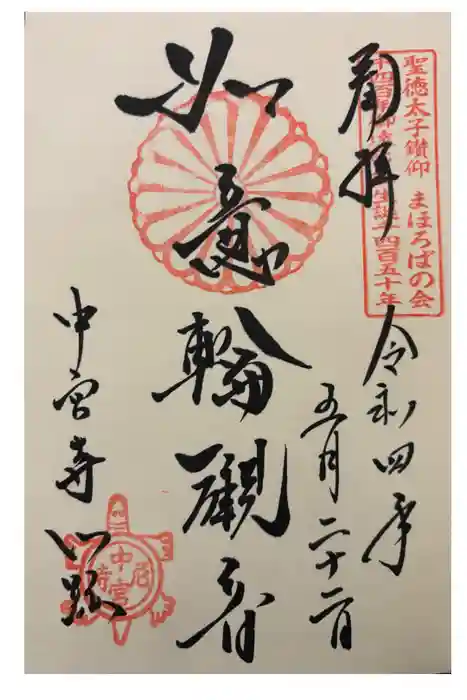 聖徳太子鑽仰 まほろばの会
千四百年御遠忌 生誕千四百五十年
奉拝
令和四年
五月二十二日
如意輪觀音
中宮寺門跡
中宮
尼寺